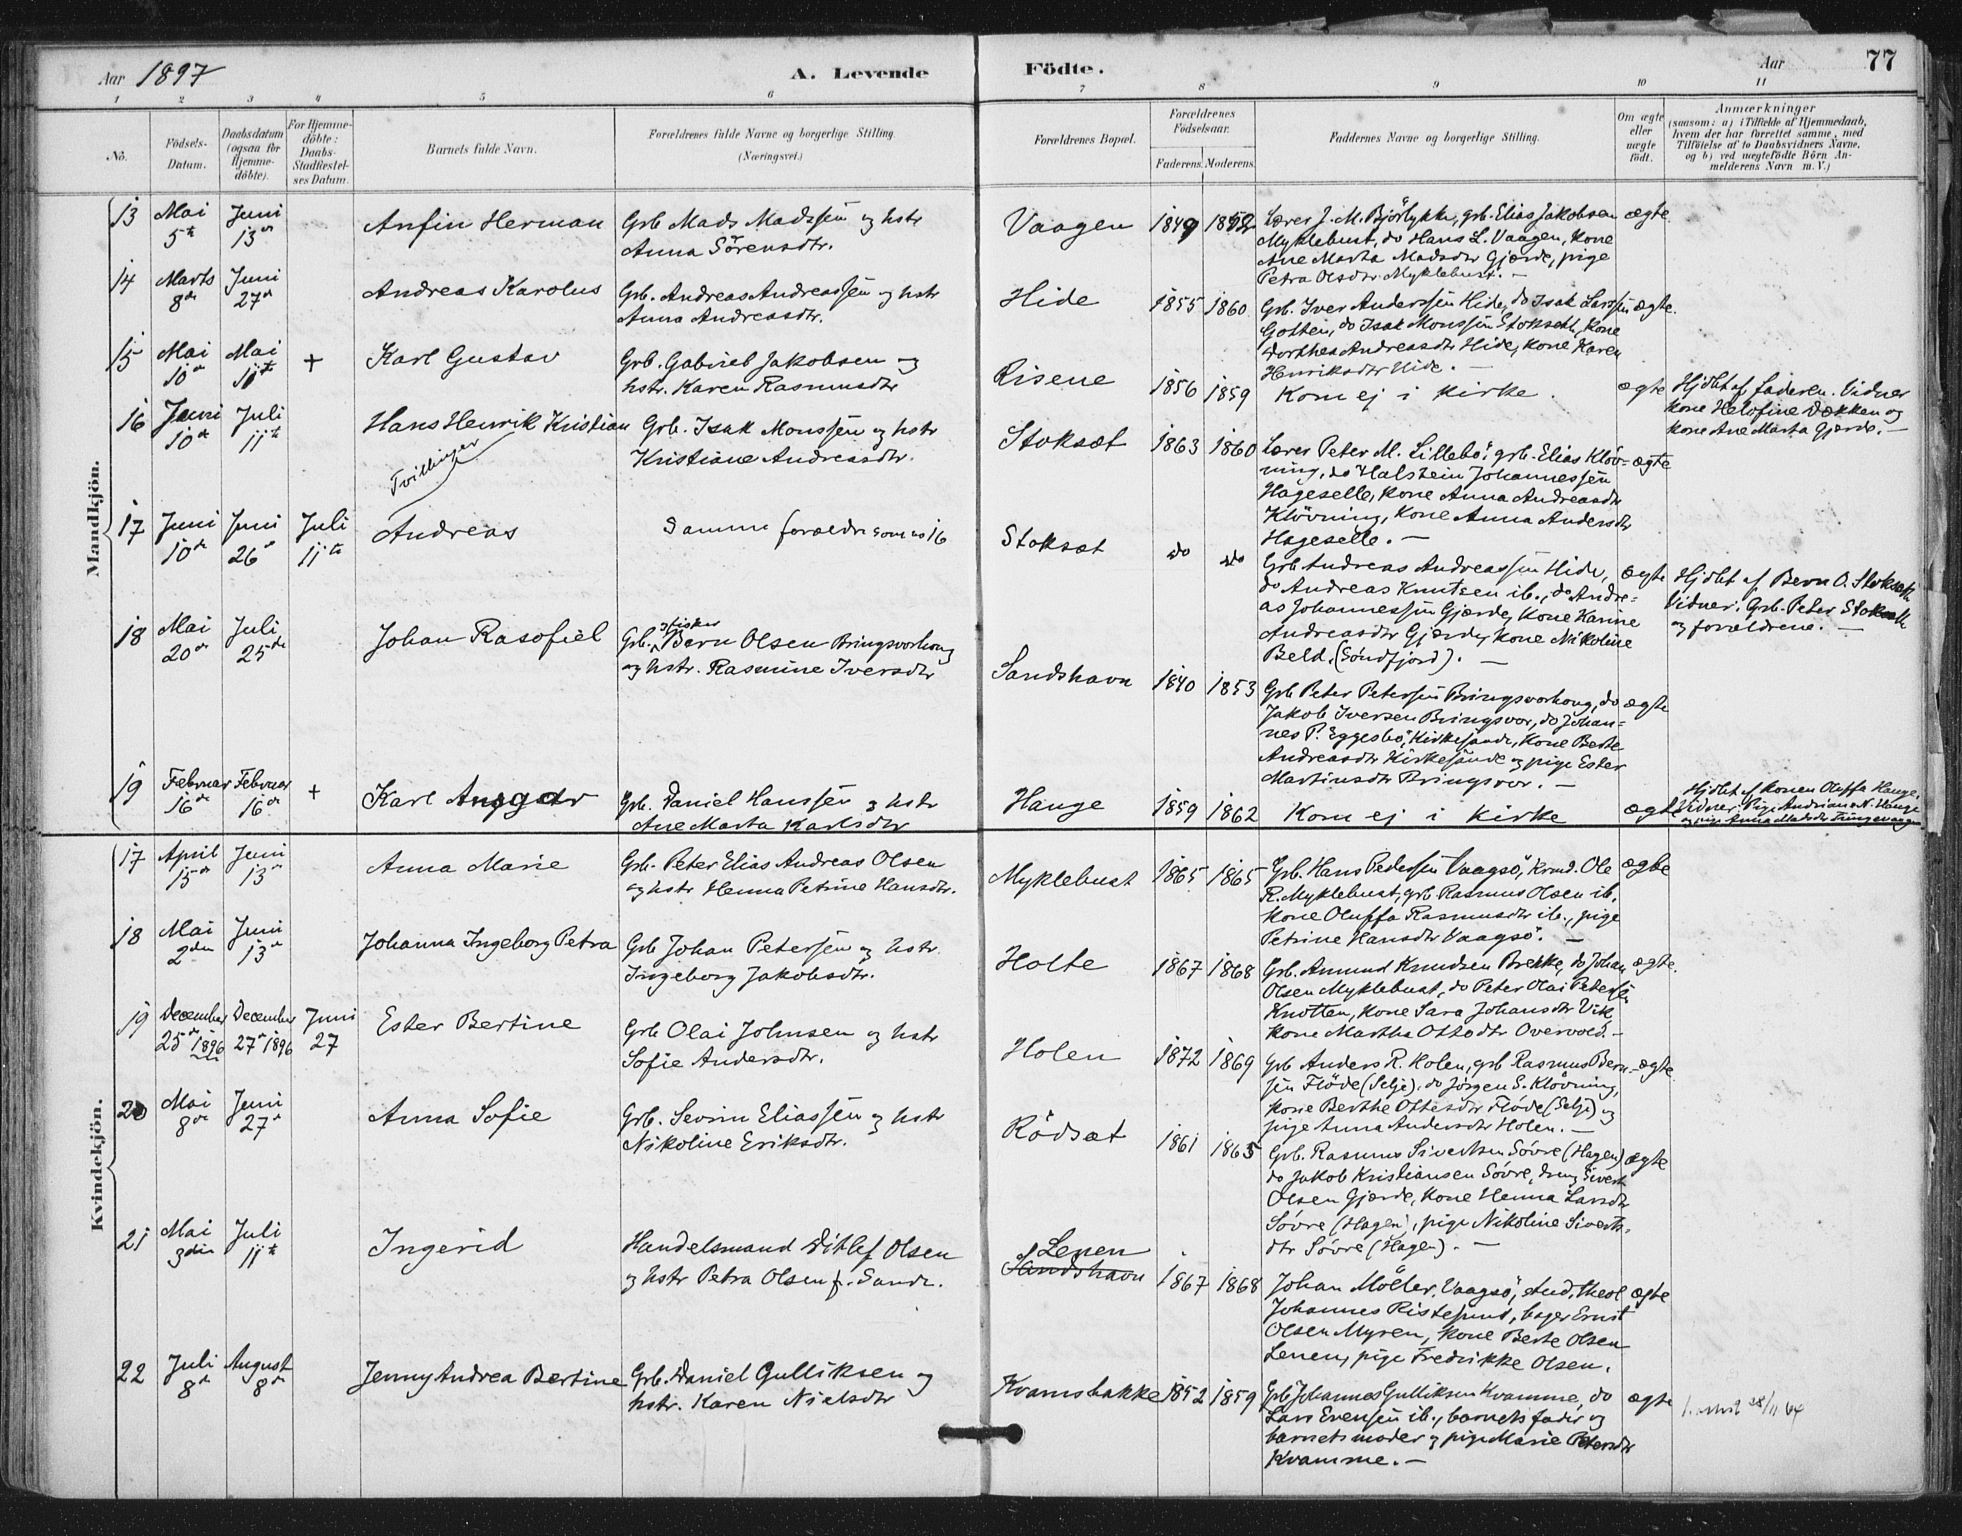 Aar 1897 A. Levende Födte. Aar 77
1 2 3 4 5 6 7 8 9 10 11
No.
Födsels-
Datum.
Daabsdatum
(ogsaa for
Hjemme-
döbte).
For Hjemme-
döbte:
Daabs-
Stadfæstel-
ses Datum.
Barnets fulde Navn.
Forældrenes fulde Navne og borgerlige Stilling.
(Næringsvei.)
Forældrenes Bopæl.
Forældrenes
Födselsaar.
Faderens. Moderens.
Faddernes Navne og borgerlige Stilling.
Om ægte
eller
uægte
født.
Anmærkninger
(saasom: a) i Tilfælde af Hjemmedaab,
hvem der har forrettet samme, med
Tilföielse af to Daabsvidners Navne,
og b) ved uægtefödte Börn An-
melderens Navn m.V.)
Mandkjön.
13 Mai 5te Juni 13de Anfin Herman
Grb Mads Madssen og hstr
Anna Sörensdtr.
Vaagen 1849 1852
Lærer J. M. Björlykke, grb. Elias Jakobsen
Myklebust, do Hans L. Vaagen, kone
Ane Marta Madsdtr Gjærde, pige
Petra Olsdtr Myklebust. –
ægte
14 Marts 8de Juni 27de Andreas Karolus
Grb. Andreas Andreassen og hstr
Anna Andreasdtr.
Hide 1855 1860
Grb. Iver Anderssen Hide, do Isak Larssen
Gotten, do Isak Monssen Stoksett, kone
Dorthea Andreasdtr Hide, kone Karen
Henriksdtr Hide. –
ægte.
15 Mai 10de Mai 11te + Karl Gustav
Grb. Gabriel Jakobsen og
hstr. Karen Rasmusdtr
Risene 1856 1859
Kom ej i kirke.
ægte
Hjdbt af faderen. Vidner
kone Helofine Dækken og
kone Ane Marta Gjærde. –
16 Juni 10de Juli 11te Hans Henrik Kristian
Tvillinger
Grb. Isak Monssen og hstr
Kristiane Andreasdtr.
Stoksæt 1863 1860
Lærer Peter M. Lillebö, grb. Elias Klöv-
ning, do Halstein Johannessen
Hageselle, kone Anna Andreasdtr
Klövning, kone Anna Andersdtr
Hageselle. –
ægte
17 Juni 10de Juni 26de Juli 11te Andreas
Samme forældre som no 16
Stoksæt do do
Grb Andreas Andreassen Hide,
do Andreas Knutsen ib., do Andre-
as Johannessen Gjærde, kone Karine
Andreasdtr Gjærde, kone Nikoline
Beld, (Söndfjord). –
ægte
Hjdbt af Bern O. Stoksæth
Vidner: Grb. Peter Stoksæth
og forældrene. –
18 Mai 20de Juli 25de Johan Rasofiel
Grb. & fisker Bern Olsen Bringsvorhoug
og hstr. Rasmine Iversdtr
Sandshavn 1840 1853
Grb Peter Peterssen Bringsvorhoug, do
Jakob Iversen Bringsvor, do Johan-
nes P. Eggesbö, Kirkesande, kone Berte
Andreasdtr Kirkesande og pige Ester
Martinsdtr Bringsvor. –
ægte
19 Februar 16de Februar 16de + Karl Ansgar
Grb. Daniel Hanssen og hstr
Ane Marta Karlsdtr
Hauge 1859 1862
Kom ej i kirke
ægte
Hjdbt af konen Oluffa Hauge.
Vidner: Pige Andriane N. Hauge
og pige Anna Madsdtr
Kvindekjön.
17 April 15de Juni 13de Anna Marie
Grb. Peter Elias Andreas Olsen
og hstr Henna Petrine Hansdtr.
Myklebust 1865 1865
Grb. Hans Pedersen Vaagsö, Krmd. Ole
R. Myklebust, grb Rasmus Olsen ib,
kone Oluffa Rasmusdtr ib., pige
Petrine Hansdtr Vaagsö. –
ægte
18 Mai 2den Juni 13de Johanna Ingeborg Petra
Grb Johan Peterssen og hstr.
Ingeborg Jakobsdtr.
Holte 1867 1868
Grb. Amund Knudsen Brekke, do Johan
Olsen Myklebust, do Peter Olai Peterssen
Knotten, kone Sara Johansdtr Vik
kone Martha Ottodtr Overvold. –
ægte.
19 December 25de 1896 December 27de 1896 Juni 27 Ester Bertine
Grb Olai Johnsen og hstr
Sofie Andersdtr.
Holen 1872 1869
Grb Anders R. Holen, grb Rasmus Bern-
sen Flöde (Selje), do Jörgen S. Klövning,
kone Berthe Ottesdtr Flöde (Selje) og
pige Anna Andersdtr Holen. –
ægte
20 Mai 8de Juni 27de Anna Sofie
Grb. Sevrin Eliassen og hstr
Nikoline Eriksdtr.
Rödsæt 1861 1865
Grb. Rasmus Sivertsen Sövre (Hagen)
do Jakob Kristiansen Sövre, dreng Sivert
Olsen Gjærde, kone Henna Larsdtr
Sövre (Hagen), pige Nikoline Siverts-
dtr Sövre (Hagen). –
ægte
21 Mai 3die Juli 11te Ingerid
Handelsmand Ditlef Olsen
og hstr Petra Olsen f. Sande.
Lenen
Sandshavn 1867 1868
Johan Möller, Vaagsö, stud. theol
Johannes Ristesund, bager Ernst
Olsen Myren, kone Berte Olsen
Lenen, pige Fredrikke Olsen.
ægte
22 Juli 8de August 8de Jenny Andrea Bertine
Grb. Daniel Gulliksen og
hstr. Karen Nielsdtr
Kvamsbakke 1852 1859
Grb Johannes Gulliksen Kvamme, do
Lars Evensen ib., barnets fader og
barnets moder og pige Marie Petersdtr
Kvamme. –
ægte
28/11 64